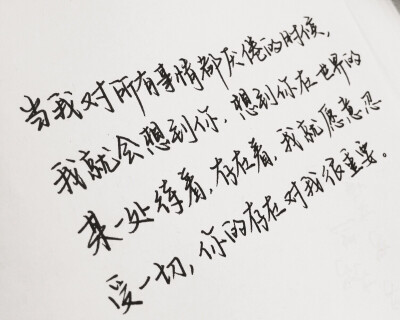 当我对所有事情都厌倦的时候，
我就会想到你，想到你在世界的
某一处待着，存在着，我就愿意忍
受一切，你的存在对我很重要。